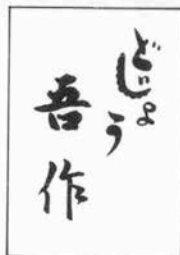 どじょう
吾作